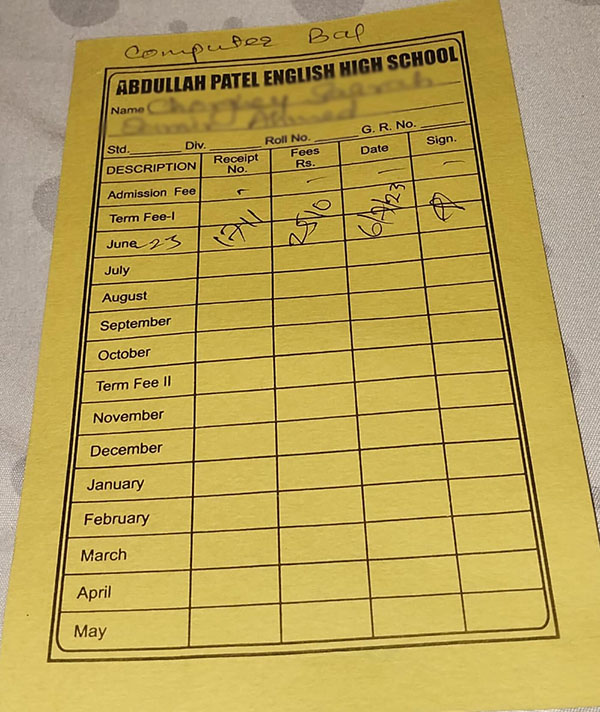 Computer Bal
ABDULLAH PATEL ENGLISH HIGH SCHOOL
Name
Std. Div. Roll No. G. R. No.
DESCRIPTION Receipt No. Fees Rs. Date Sign.
Admission Fee - - - -
Term Fee-I
June 23 6/7/23
July
August
September
October
Term Fee II
November
December
January
February
March
April
May